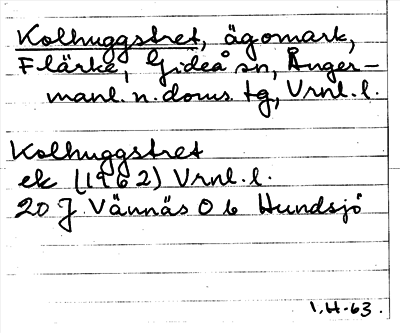 Kolhuggstret, ägomark,
Flärke, Gideå sn, Ånger-
manl. n. doms. tg, Vrnl. l.
Kolhuggstret
ek (1962) Vrnl. l.
20 J Vännäs 0 b Hundsjö
1.H-63.